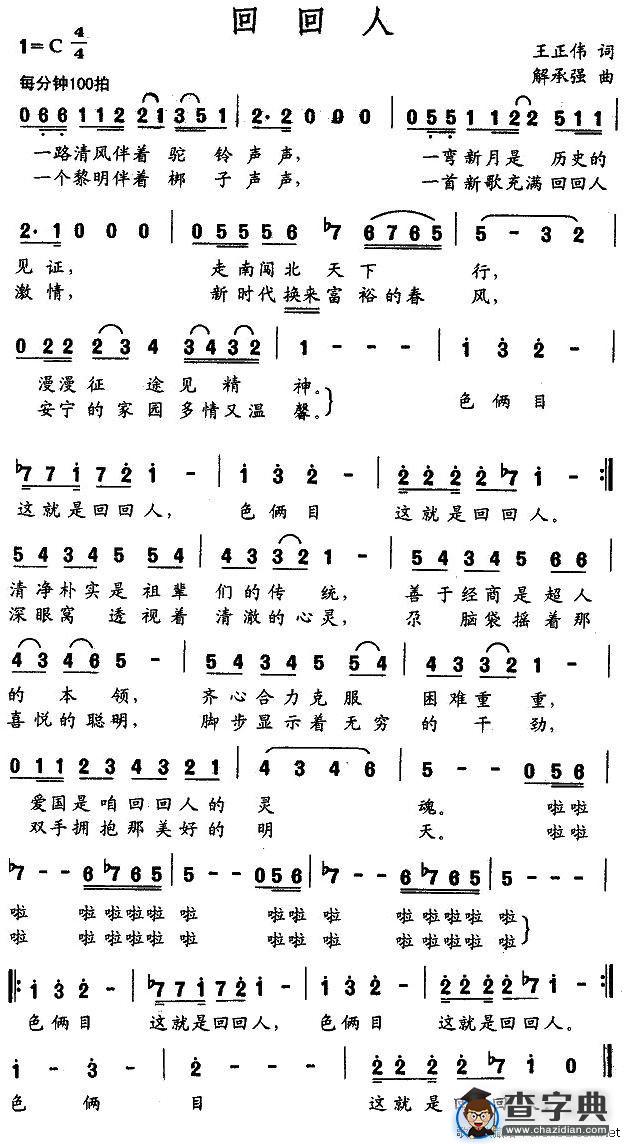 回回人
1=C 4/4
王正伟 词
每分钟100拍
解承强 曲
0 6 6 1 1 2 2 2 1 3 5 1 | 2· 2 0 0 0 | 0 5 5 1 1 2 2 5 1 1 |
一路清风伴着 驼 铃声声， 一弯新月是 历史的
一个黎明伴着 梆 子声声， 一首新歌充满 回回人
2· 1 0 0 0 | 0 5 5 5 5 6 ♭7 6 7 6 5 | 5 - 3 2 |
见证， 走南闯北 天下 行，
激情， 新时代换来富裕的春 风，
0 2 2 2 3 4 3 4 3 2 | 1 - - - | i 3 2 - |
漫漫征 途见精 神。
安宁的家园多情又温 馨。 色俩目
♭7 7 i 7 2 i - | i 3 2 - | 2 2 2 2 2 ♭7 i - :||
这就是回回人， 色俩目 这就是回回人。
5 4 3 4 5 5 4 | 4 3 3 2 1 - | 5 4 3 4 5 6 6 |
清净朴实是祖辈 们的传 统， 善于经商是超人
深眼窝 透视着 清澈的心灵， 尕 脑袋摇着那
4 3 4 6 5 - | 5 4 3 4 5 5 4 | 4 3 3 2 1 - |
的 本 领， 齐心合力克服 困难重 重，
喜悦的聪明， 脚步显示着无穷 的 干 劲，
0 1 1 2 3 4 3 2 1 | 4 3 4 6 | 5 - - 0 5 6 |
爱国是咱回回人的 灵 魂。 啦啦
双手拥抱那美好的 明 天。 啦啦
♭7 - - 6 ♭7 6 5 | 5 - - 0 5 6 | ♭7 - - 6 ♭7 6 5 | 5 - - - |
啦 啦 啦啦啦 啦 啦啦 啦 啦 啦啦啦 啦
啦 啦 啦啦啦 啦 啦啦 啦 啦 啦啦啦 啦
||: i 3 2 - | ♭7 7 i 7 2 i - | i 3 2 - | 2 2 2 2 2 ♭7 i - :||
色俩目 这就是回回人， 色俩目 这就是回回人。
i - 3 - | 2 - - - | 2 2 2 2 2 ♭7 i 0 ||
色 俩 目 这就是
查字典
www.chazidian.com